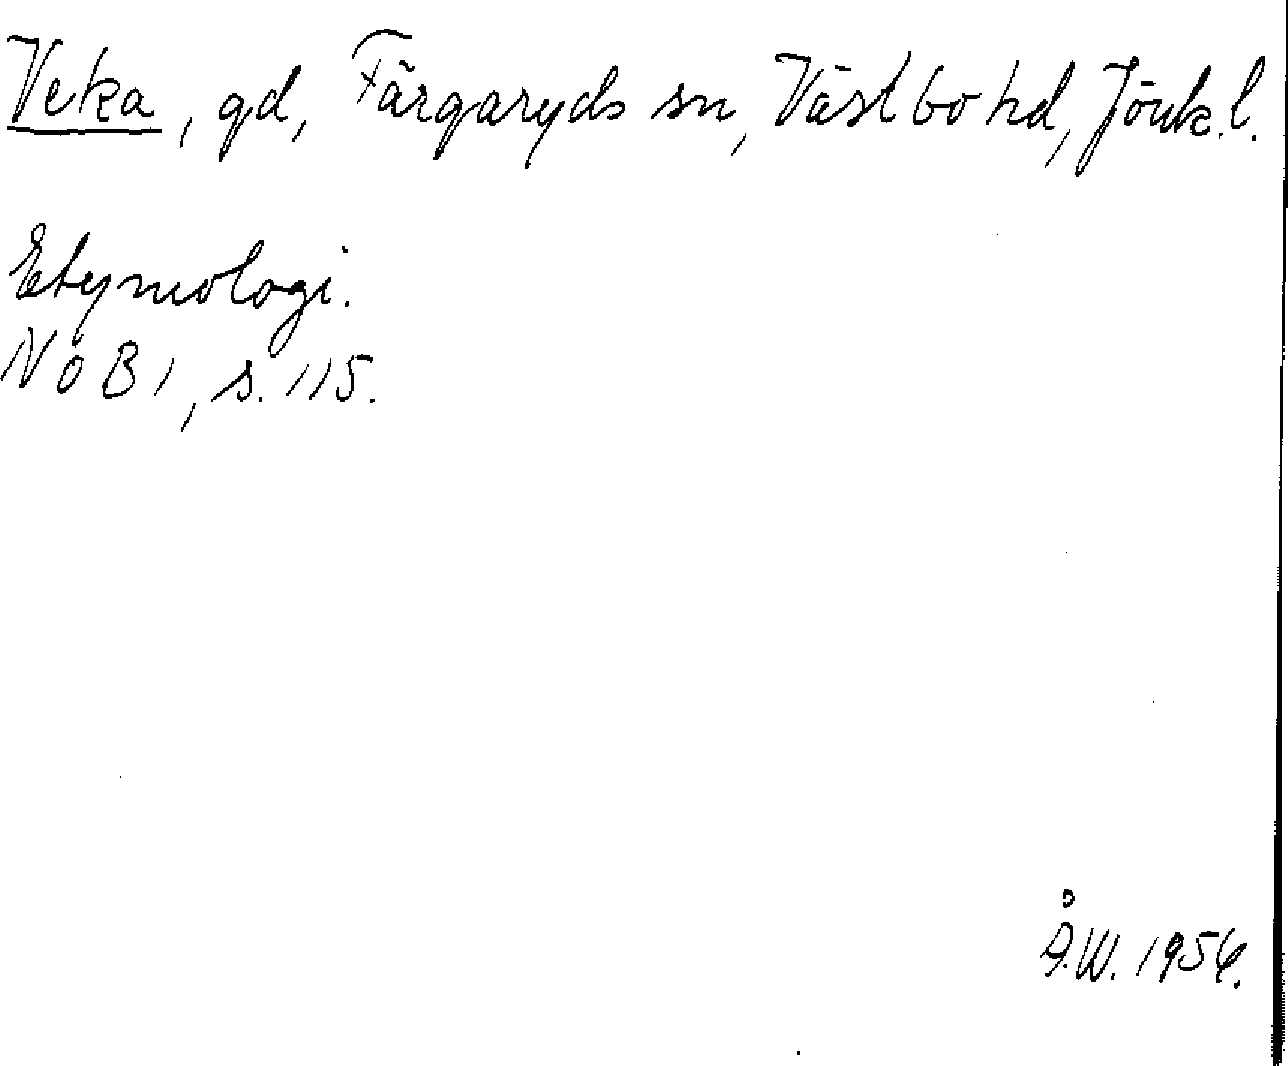 Veka, gd, Färgaryds sn, Västbo hd, Jönk. l.
Etymologi.
NoB 1, s. 115.
Å.W. 1956.